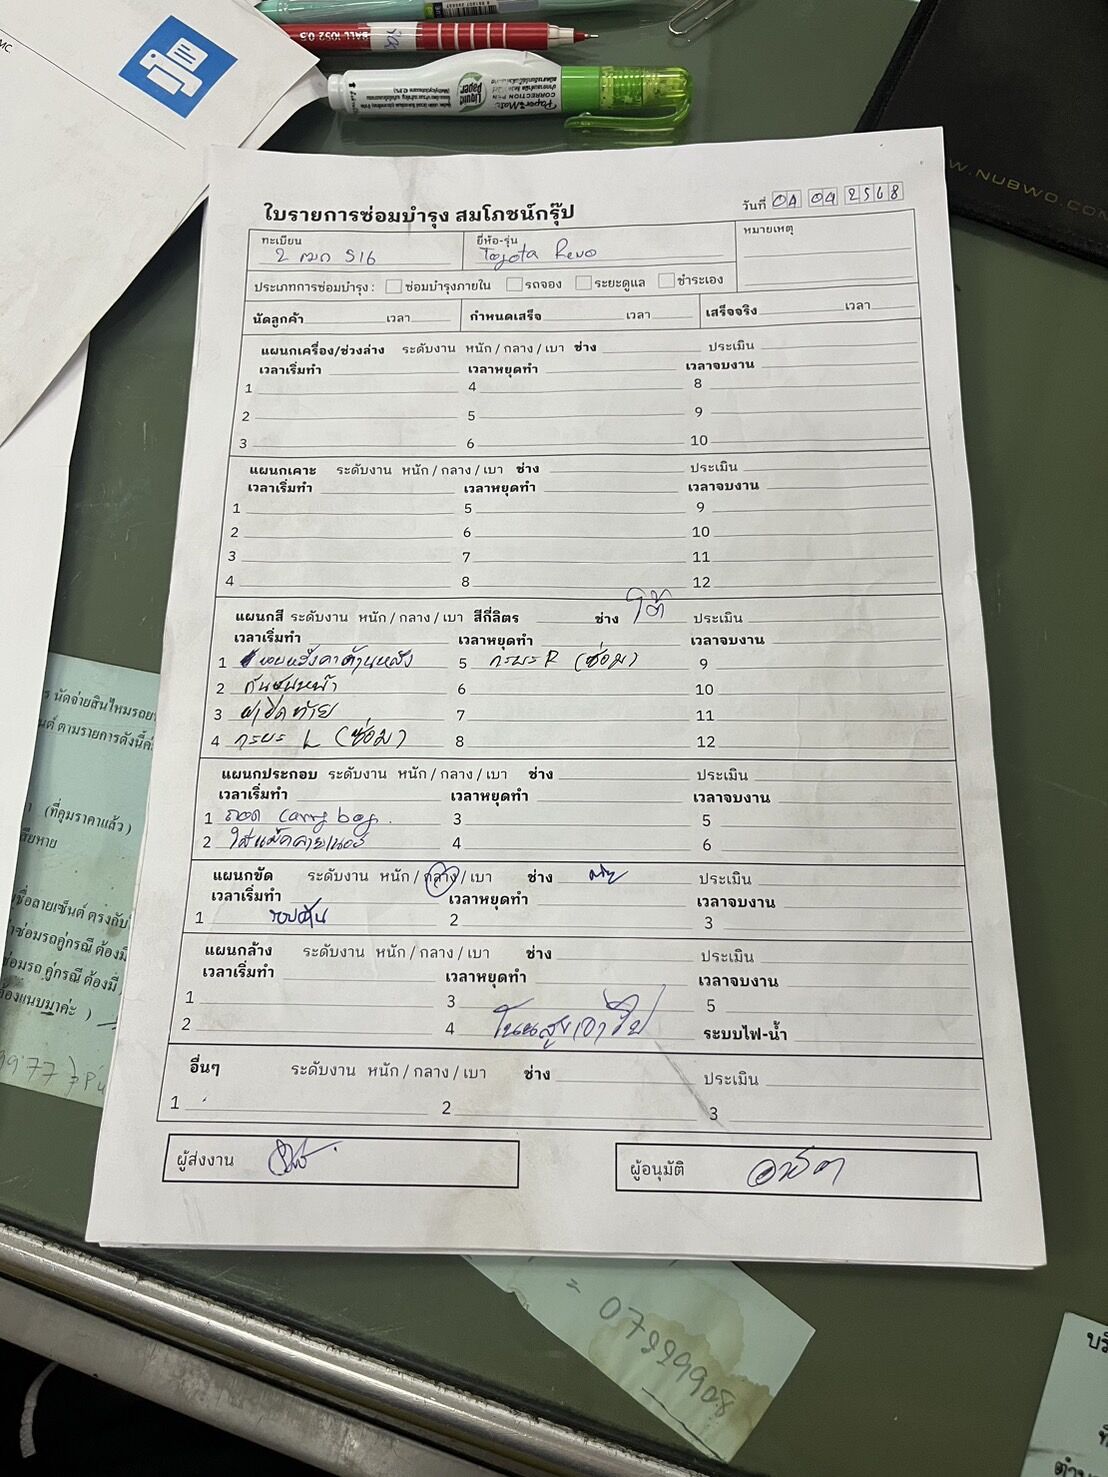 MC.
BALL 1052 0.5
Liquid Paper
CORRECTION PEN
Paper Mate
W.NUBWO.COM
ใบรายการซ่อมบำรุง สมโภชน์กรุ๊ป
วันที่ 04 04 2568
ทะเบียน
ยี่ห้อ-รุ่น
หมายเหตุ
2 ฒก 516
Toyota Revo
ประเภทการซ่อมบำรุง : ซ่อมบำรุงภายใน รถจอง ระยะดูแล ชำระเอง
นัดลูกค้า เวลา กำหนดเสร็จ เวลา เสร็จจริง เวลา
แผนกเครื่อง/ช่วงล่าง ระดับงาน หนัก / กลาง / เบา ช่าง ประเมิน
เวลาเริ่มทำ เวลาหยุดทำ เวลาจบงาน
1 4 8
2 5 9
3 6 10
แผนกเคาะ ระดับงาน หนัก / กลาง / เบา ช่าง ประเมิน
เวลาเริ่มทำ เวลาหยุดทำ เวลาจบงาน
1 5 9
2 6 10
3 7 11
4 8 12
แผนกสี ระดับงาน หนัก / กลาง / เบา สีกี่ลิตร ช่าง โต้ ประเมิน
เวลาเริ่มทำ เวลาหยุดทำ เวลาจบงาน
1 ขอบหลังคาด้านหลัง 5 กระบะ R (ซ่อม) 9
2 กันชนหน้า 6 10
3 ฝาปิดท้าย 7 11
4 กระบะ L (ซ่อม) 8 12
แผนกประกอบ ระดับงาน หนัก / กลาง / เบา ช่าง ประเมิน
เวลาเริ่มทำ เวลาหยุดทำ เวลาจบงาน
1 ถอด carry boy. 3 5
2 ใส่แม็คลายเนอร์ 4 6
แผนกขัด ระดับงาน หนัก / กลาง / เบา ช่าง ประเมิน
เวลาเริ่มทำ เวลาหยุดทำ เวลาจบงาน
1 รอบคัน 2 3
แผนกล้าง ระดับงาน หนัก / กลาง / เบา ช่าง ประเมิน
เวลาเริ่มทำ เวลาหยุดทำ เวลาจบงาน
1 3 5
2 4 โนนสูงเอาไป ระบบไฟ-น้ำ
อื่นๆ ระดับงาน หนัก / กลาง / เบา ช่าง ประเมิน
1 2 3
ผู้ส่งงาน
ผู้อนุมัติ
นัดจ่ายสินไหมรถย
ตามรายการดังนี้ค่
(ที่คุมราคาแล้ว)
สียหาย
ชื่อลายเซ็นต์ ตรงกับ
ซ่อมรถคู่กรณี ต้องมี
ซ่อมรถ คู่กรณี ต้องมี
ต้องแนบมาค่ะ )
= 079999908